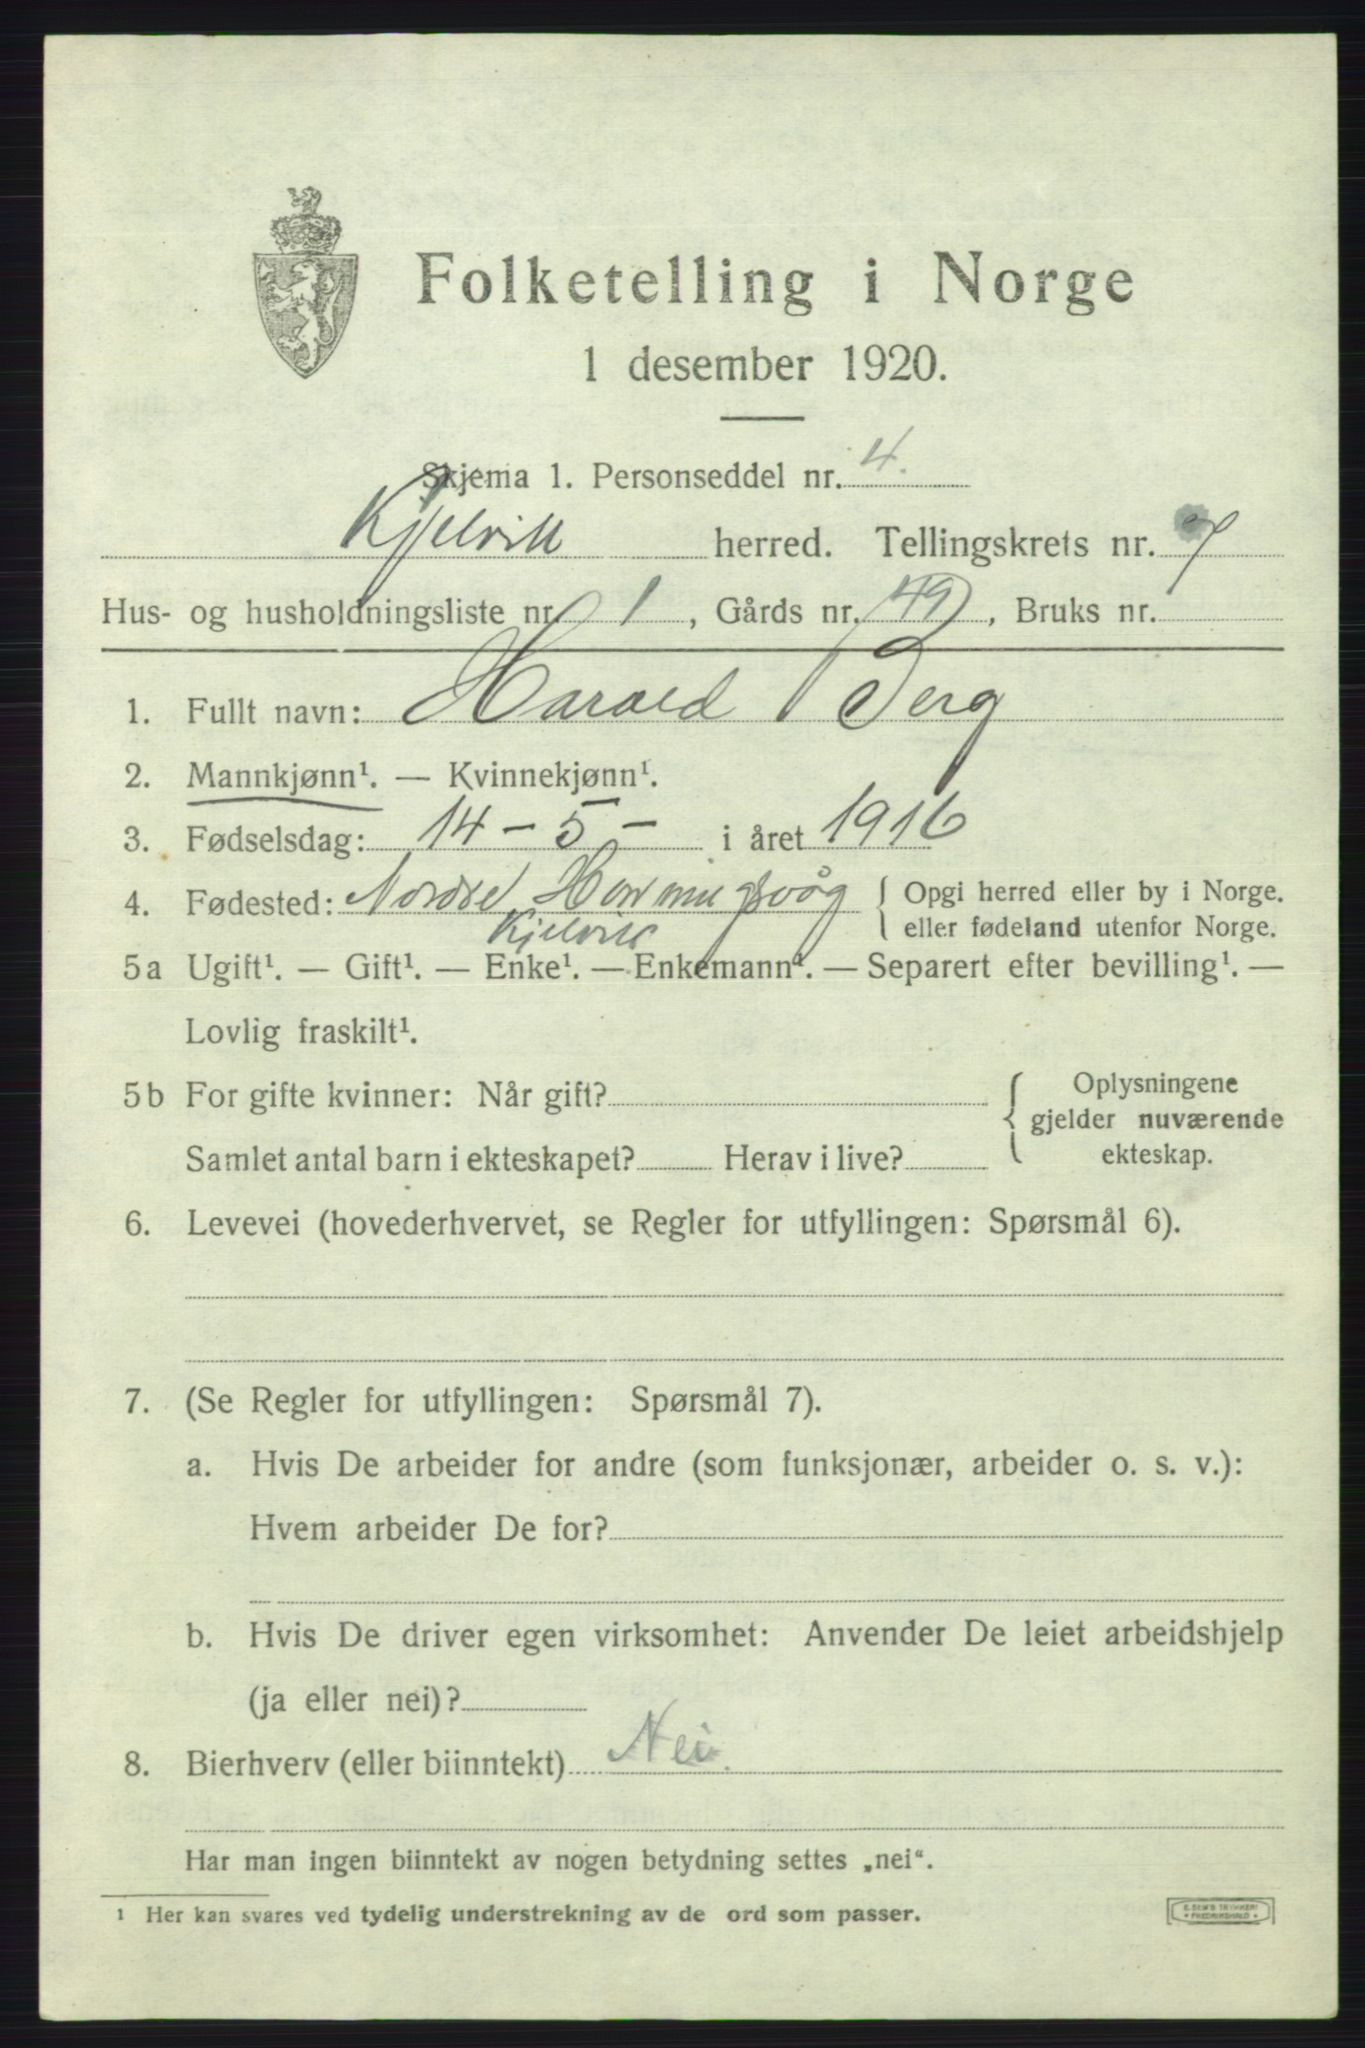 Folketelling i Norge
1 desember 1920.
Skjema 1. Personseddel nr. 4.
Kjelvik herred. Tellingskrets nr. 7
Hus- og husholdningsliste nr. 1, Gårds nr. (49), Bruks nr.
1. Fullt navn: Harald Berg
2. Mannkjønn¹. — Kvinnekjønn¹.
3. Fødselsdag: 14 – 5 – i året 1916
4. Fødested: Nordre Honningsvåg { Opgi herred eller by i Norge.
Kjelvik eller fødeland utenfor Norge.
5a Ugift¹. — Gift¹. — Enke¹. — Enkemann¹. — Separert efter bevilling¹. —
Lovlig fraskilt¹.
5b For gifte kvinner: Når gift? { Oplysningene
gjelder nuværende
Samlet antal barn i ekteskapet? Herav i live? ekteskap.
6. Levevei (hovederhvervet, se Regler for utfyllingen: Spørsmål 6).
7. (Se Regler for utfyllingen: Spørsmål 7).
a. Hvis De arbeider for andre (som funksjonær, arbeider o. s. v.):
Hvem arbeider De for?
b. Hvis De driver egen virksomhet: Anvender De leiet arbeidshjelp
(ja eller nei)?
8. Bierhverv (eller biinntekt) Nei.
Har man ingen biinntekt av nogen betydning settes „nei“.
¹ Her kan svares ved tydelig understrekning av de ord som passer.
E. SEM'S TRYKKERI
• FREDRIKSHALD •